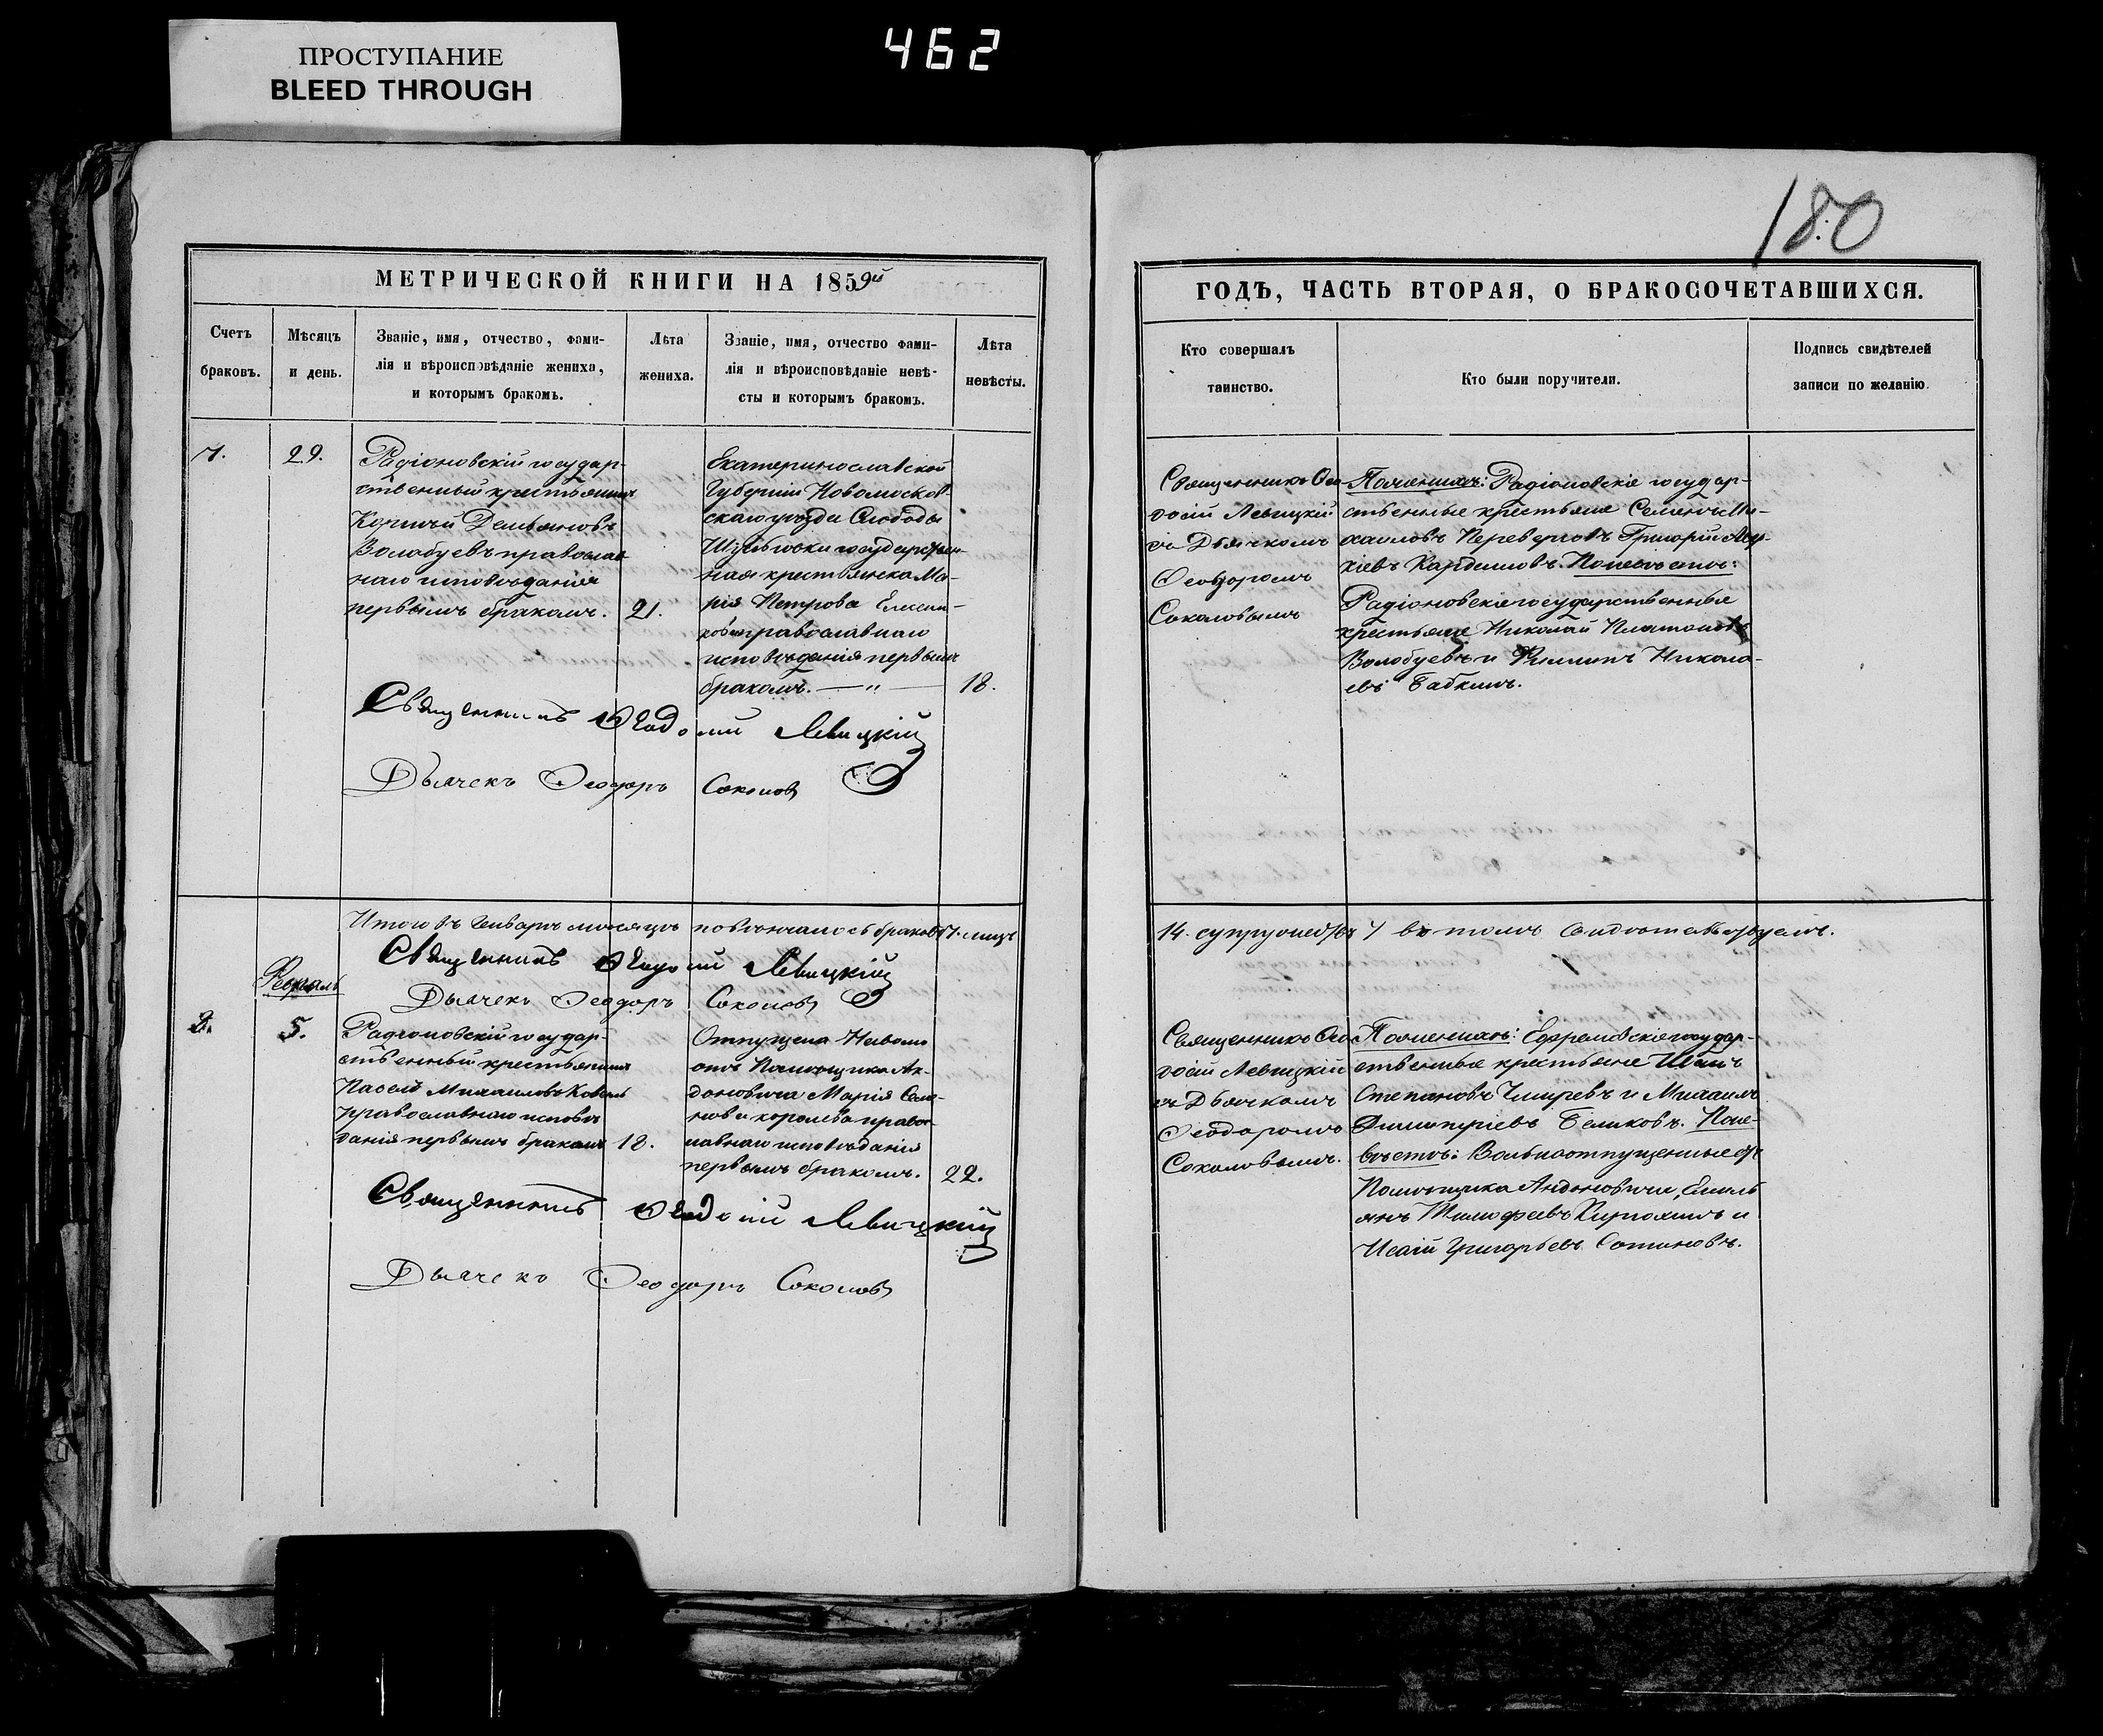 ПРОСТУПАНИЕ
BLEED THROUGH
462
180
МЕТРИЧЕСКОЙ КНИГИ НА 1859й
Счетъ
браковъ.
Мѣсяцъ
и день.
Званіе, имя, отчество, фами-
лія и вѣроисповѣданіе жениха,
и которымъ бракомъ.
Лѣта
жениха.
Званіе, имя, отчество фами-
лія и вѣроисповѣданіе невѣ-
сты и которымъ бракомъ.
Лѣта
невѣсты.
7.
29.
Радіоновскій государ-
ственный крестьянинъ
Демьяновъ
Волобуевъ православ
наго исповѣданія
первымъ бракомъ.
21.
Екатеринославской
Губерніи Новомосков-
скаго уѣзда Слободы
государствен-
ная крестьянка Ма-
рія Петрова
православнаго
исповѣданія первымъ
бракомъ. — " —
18.
Священникъ Ѳеодосій Левицкій
Дьячекъ Ѳеодоръ Соколовъ
Итого въ Генварѣ мѣсяцѣ повѣнчалось браковъ 7. лицъ
Священникъ Ѳеодосій Левицкій
Дьячекъ Ѳеодоръ Соколовъ
Февраль
8.
5.
Радіоновскій государ-
ственный крестьянинъ
Михаиловъ
православнаго исповѣ
данія первымъ бракомъ
18.
Отпущена
отъ Помѣщика Ан-
доновича Марія Семе-
нова Королева право
славнаго исповѣданія
первымъ бракомъ.
22.
Священникъ Ѳеодосій Левицкій
Дьячекъ Ѳеодоръ Соколовъ
ГОДѢ, ЧАСТЬ ВТОРАЯ, О БРАКОСОЧЕТАВШИХСЯ.
Кто совершалъ
таинство.
Кто были поручители.
Подпись свидѣтелей
записи по желанію.
Священникъ Ѳео
досій Левицкій
съ Дьячкомъ
Ѳеодоромъ
Соколовымъ
По женихѣ: Радіоновскіе государ-
ственные крестьяне Семенъ Ми-
хаиловъ Григорій
По невѣстѣ:
Радіоновскіе государственные
крестьяне Николай Платоновъ
Волобуевъ и Филиппъ Никола-
евъ Бабкинъ.
14. супружествъ 7 въ томъ свидѣтельствуемъ.
Священникъ Ѳео
досій Левицкій
съ Дьячкомъ
Ѳеодоромъ
Соколовымъ.
По женихѣ: Ефремовскіе государ-
ственные крестьяне Иванъ
Степановъ и Михаилъ
Димитріевъ Беликовъ. По не-
вѣстѣ: Вольноотпущенные отъ
Помѣщика Андоновича, Емель
янъ Тимофеевъ и
Исай Григорьевъ